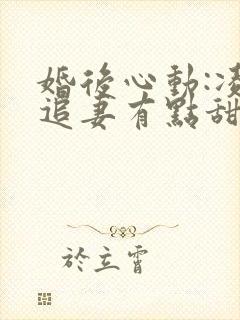 婚後心動:凌
追妻有點甜
於立霄